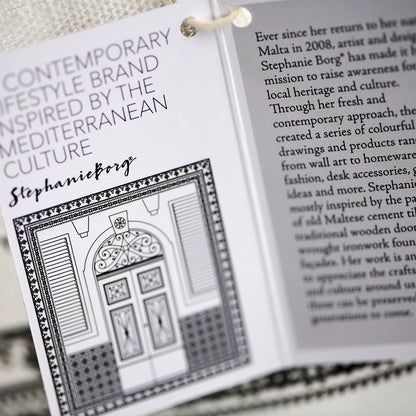 CONTEMPORARY
LIFESTYLE BRAND
INSPIRED BY THE
MEDITERRANEAN
CULTURE
StephanieBorg®
Ever since her return to her na
Malta in 2008, artist and desig
Stephanie Borg® has made it h
mission to raise awareness for
local heritage and culture.
Through her fresh and
contemporary approach, the
created a series of colourful
drawings and products ran
from wall art to homewar
fashion, desk accessories, g
ideas and more. Stephan
mostly inspired by the pa
of old Maltese cement ti
traditional wooden door
wrought ironwork foun
façades. Her work is an
to appreciate the craft
and culture around us
these can be preserve
generations to come.